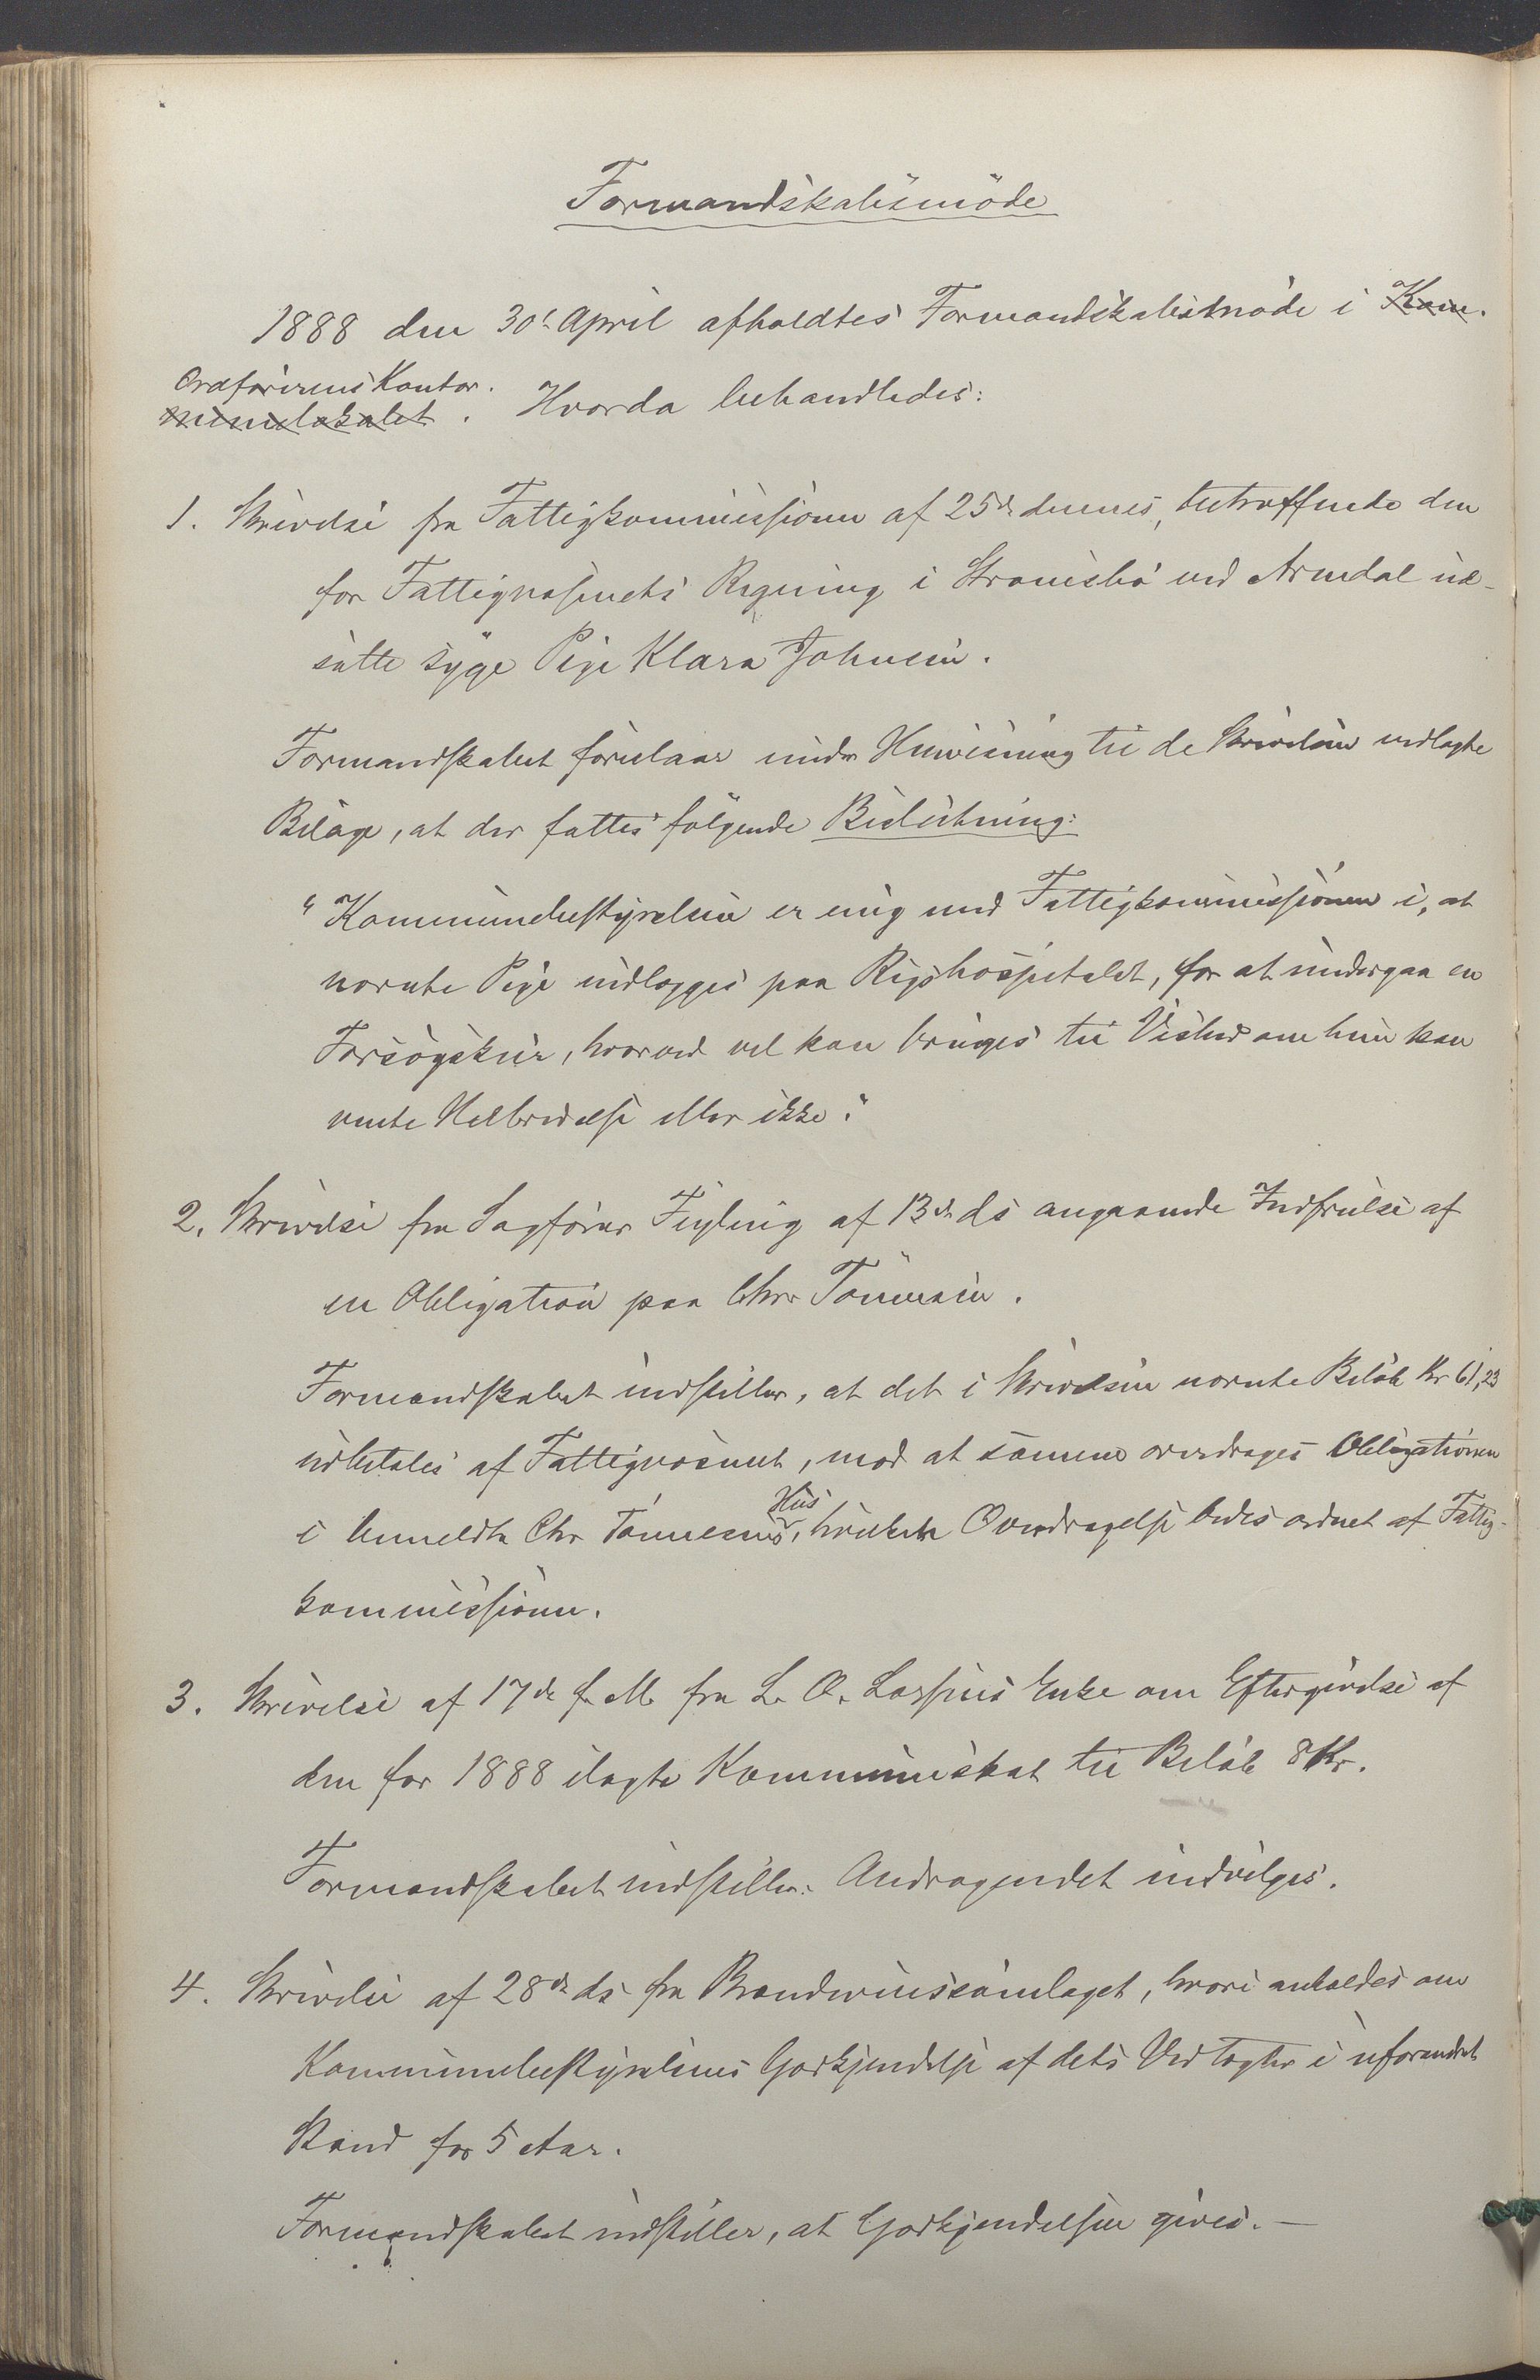 Formandskabsmöde
1888 den 30t April afholdtes Formandskabsmöde i Kom-
Ordförerens Kontor.
munelokalet. Hvorda behandledes:
1. Skrivelse fra Fattigkommissionen af 25de dennes, betræffende den
for Fattigvæsenets Regning i Strömsbö ved Arendal ud-
satte syge Pige Klara Johnsen.
Formandskabet foreslaar under Henvisning til de Skrivelsen vedlagte
Bilage, at der fattes fölgende Beslutning:
"Kommunebestyrelsen er enig med Fattigkommissionen i, at
nævnte Pige indlægges paa Rigshospitalet, for at undergaa en
Forsögskur, hvorved vel kan bringes til Vished om hun kan
vente Helbredelse eller ikke."
2. Skrivelse fra Sagförer Fugling af 13de ds angaaende Indfrielse af
en Obligation paa Chr. Tönnesen.
Formandskabet indstiller, at det i Skrivelsen nævnte Belöb Kr 61,23
udbetales af Fattigvæsenet, mod at samme overdrages Obligationen
Hus
i bemeldte Chr. Tönnesens, hvilken Overdragelse bedes ordnet af Fattig-
kommissionen.
3. Skrivelse af 17de f. M. fra L. O. Larsens Enke om Eftergivelse af
den for 1888 ilagte Kommuneskat til Belöb 8 Kr.
Formandskabet indstiller: Andragendet indvilges.
4. Skrivelse af 28de ds fra Brændevinssamlaget, hvori anholdes om
Kommunebestyrelsens Godkjendelse af dets Vedtægter i uforandret
Stand for 5 Aar.
Formandskabet indstiller, at Godkjendelsen gives. —